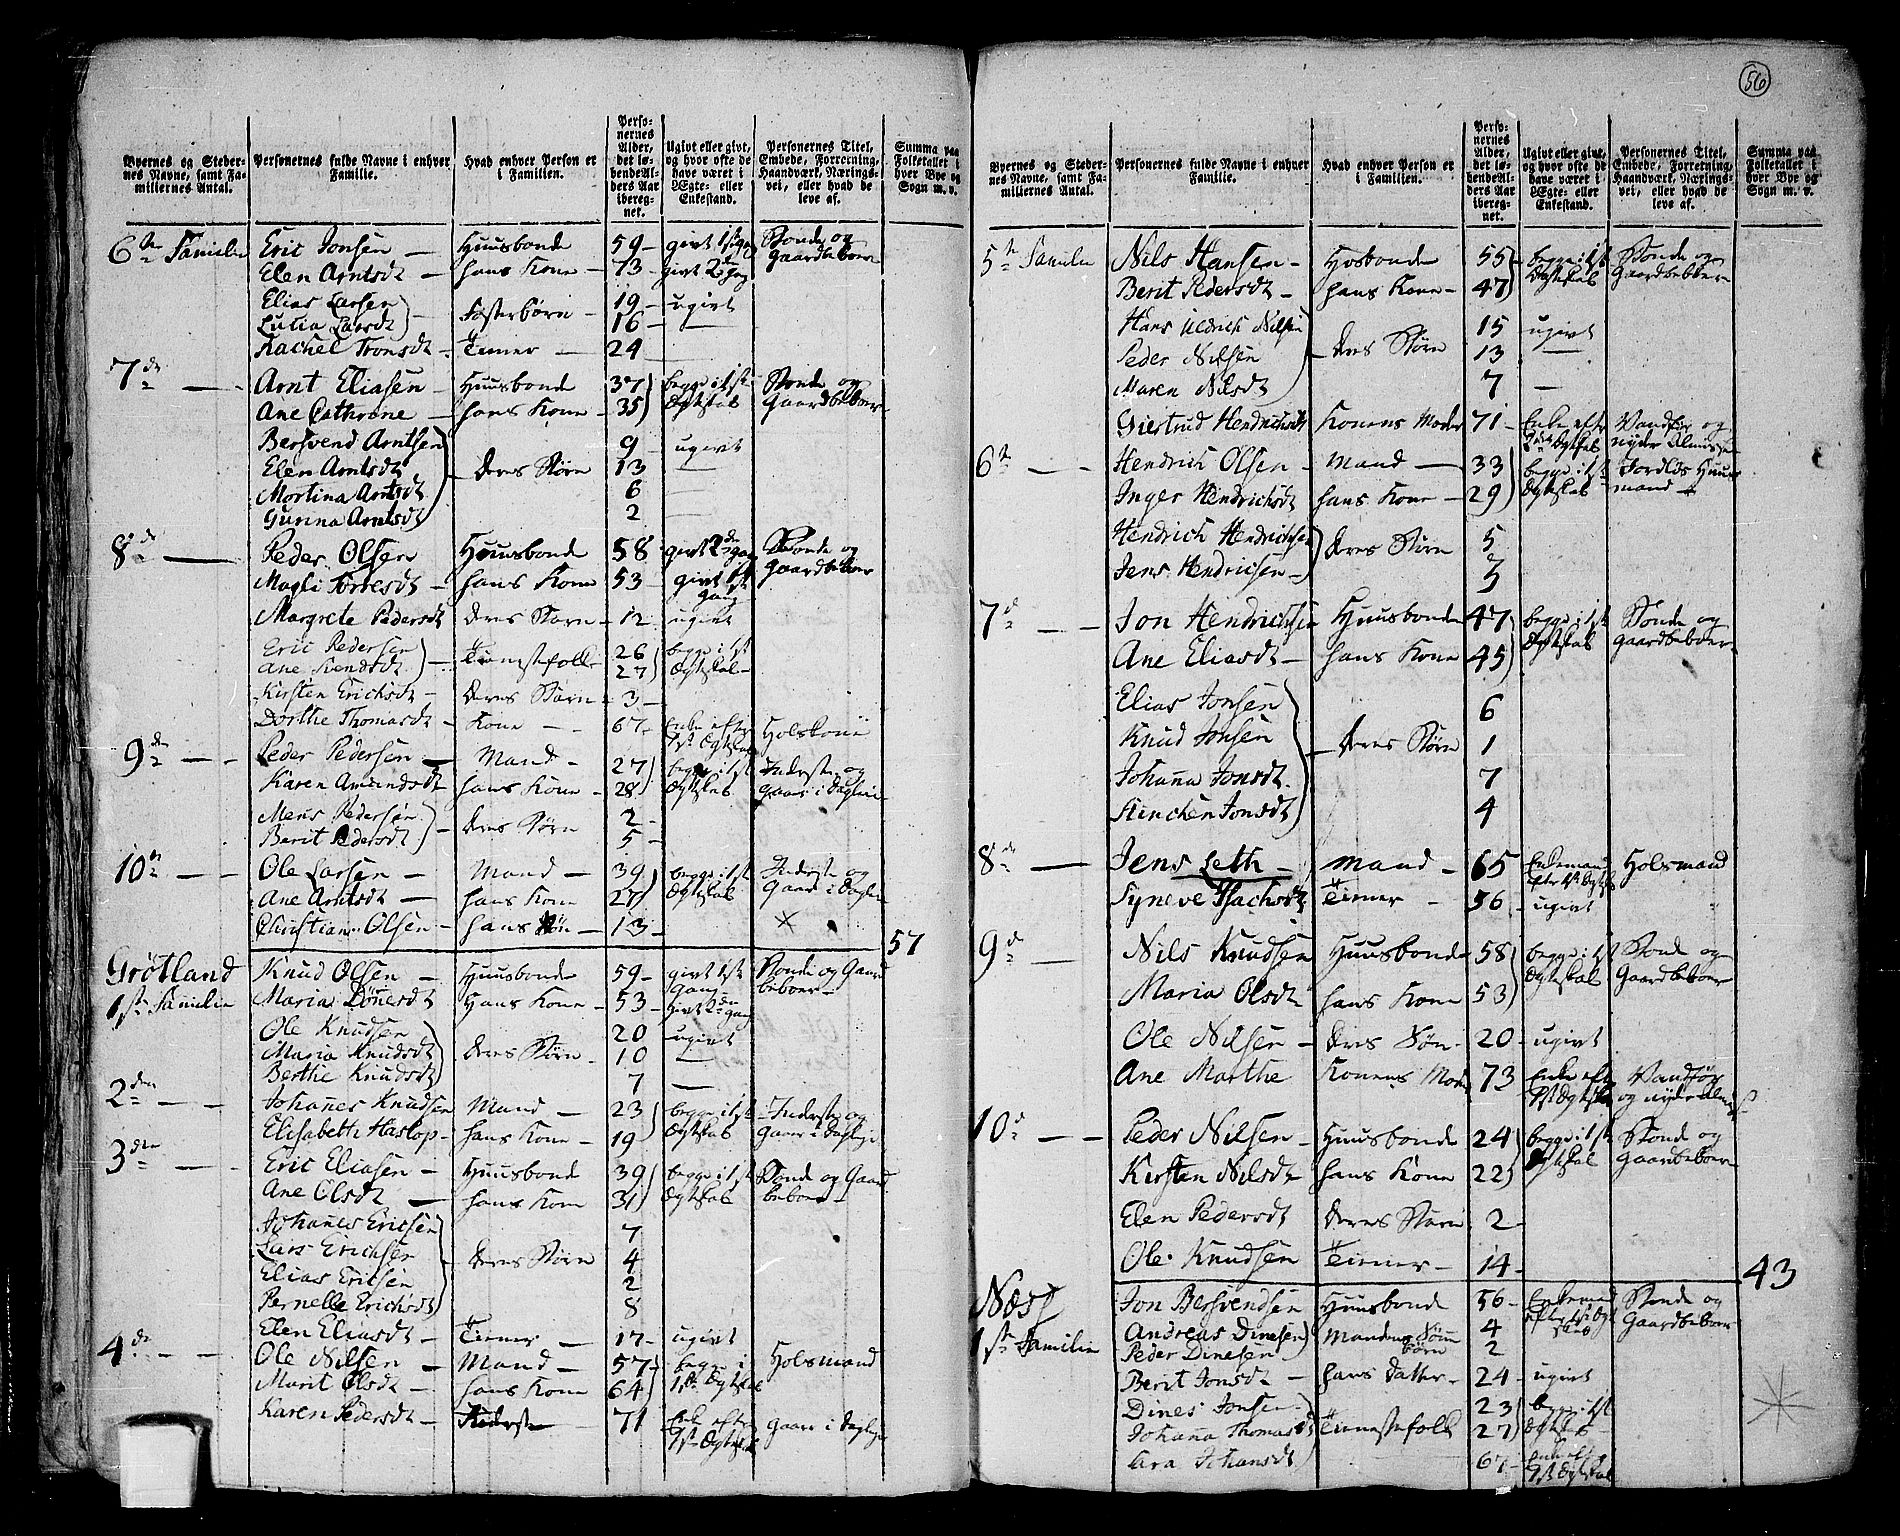 56
Byernes og Stedernes Navne, samt Familiernes Antal.
Personernes fulde Navne i enhver Familie.
Hvad enhver Person er i Familien.
Personernes Alder, det løbende Alders Aar iberegnet.
Ugivt eller givt, og hvor ofte de have været i Egte- eller Enkestand.
Personernes Titel, Embede, Forretning, Haandværk, Næringsvei, eller hvad de leve af.
Summa paa Folketallet i hver Bye og Sogn m. v.
6te Familie Eric Jonsen — Huusbonde 59 — givt 1ste gang Bonde og Gaardbeboer
Elen Arntsdt — hans Kone — 73 — givt 2den gang
Elias Larsen 19 — ugivt
Lucia Larsdt — Fosterbørn — 16 —
Rachel Tronsdt — Tiener — 24 —
7de — Arnt Eliasen — Huusbonde 37 begge i 1ste Ægteskab Bonde og Gaardbeboer
Ane Cathrine — hans Kone — 35
Bersvend Arntsen 9 ugivt
Elen Arntsdt — deres Børn — 13
Mortina Arntsdt 6
Gurina Arntsdt 2
8de — Peder Olsen Huusbonde 58 givt 2den gang Bonde og Gaardbeboer
Magli Torresdt — hans Kone — 53 — givt 1ste gang
Margrete Pedersdt deres Barn — 12 ugivt
Eric Pedersen 26 begge i 1ste Ægteskab
Ane — Tienestefolk 27
Kirsten Erichsdt — deres Barn — 3 —
Dorthe Thomasdt — Kone — 67 — Enke efter 1ste Ægteskab Holskone
9de — Peder Pedersen — Mand — 27 begge i 1ste Ægteskab Inderste og Gaaer i Dagleie
Karen Amundsdt hans Kone — 28
Mens Pedersen 2 —
Berit Pedersdt — deres Børn 5 —
10de — Ole Larsen — Mand — 39 begge i 1ste Ægteskab Inderste og Gaaer i Dagleie
Ane Arntsdt — hans Kone 27
Christian Olsen — hans Søn — 13 —
57
Grøtland Knud Olsen — Huusbonde 59 — givt 1ste Gang Bonde og Gaardbeboer —
1ste Familie Maria hans Kone — 53 — givt 2den gang
Ole Knudsen 20 ugivt
Maria Knudsdt deres Børn — 10 —
Berthe Knudsdt 7 —
2den — Johanes Knudsen Mand — 23 begge i 1ste Ægteskab Inderste og Gaaer i Dagleie
Elisabeth Hastop — hans Kone — 19
3die — Eric Eliasen — Huusbonde 39 begge i 1ste Ægteskab Bonde og Gaardbeboer —
Ane Olsdt — hans Kone 31
Johanes Ericsen 7
Lars Erichsen — deres Børn 4
Elias Ericsen 2
Pernelle Erichsdt 8
Elen Eliasdt — Tiener — 17 — ugivt
4de — Ole Nilsen — Mand — 57 begge i 1ste Ægteskab Holsmand
Marit Olsdt — hans Kone 64
Karen Pedersdt — Inderste 71 Enke efter 1ste Ægteskab Gaaer i Dagleie
Byernes og Stedernes Navne, samt Familiernes Antal.
Personernes fulde Navne i enhver Familie.
Hvad enhver Person er i Familien.
Personernes Alder, det løbende Alders Aar iberegnet.
Ugivt eller givt, og hvor ofte de have været i Egte- eller Enkestand.
Personernes Titel, Embede, Forretning, Haandværk, Næringsvei, eller hvad de leve af.
Summa paa Folketallet i hver Bye og Sogn m. v.
5te Familie Nils Hansen — Husbonde 55 begge i 1ste Ægteskab Bonde og Gaardbeboer
Berit Pedersdt — hans Kone — 47
Hans Uldrich Nilsen 15 ugivt
Peder Nilsen — deres Børn 13 —
Maren Nilsdt 7 —
Giertrud Hendrichsdt Konens Moder 71 — Enke efter 2den Ægteskab Vanfør og nyder Almisse
6te — Hendrich Olsen — Mand — 33 begge i 1ste Ægteskab Jordløs Huusmand
Inger Hendrichsdt hans Kone — 29
Hendrich Hendrichsen deres Børn 5
Jens Hendricsen —
7de — Jon Hendrichsen Huusbonde 47 begge i 1ste Ægteskab Bonde og Gaardbeboer
Ane Eliasdt — hans Kone 45
Elias Jonsen 6
Knud Jonsen — deres Børn 1
Johana Jonsdt 7
Jonsdt 4
8de — Jens Leth — Mand — 65 Enkemand efter 1ste Ægteskab Holsmand
Syneve Isachsdt Tiener — 56 — ugivt
9de — Nils Knudsen Huusbonde 58 begge i 1ste Ægteskab Bonde og Gaardbeboer
Maria Olsdt hans Kone 53
Ole Nilsen — deres Søn — 20 — ugivt
Ane Marthe Konens Moder 73 Enke efter 1ste Ægteskab Vanfør og nyder Almisse
10de — Peder Nilsen — Huusbonde 24 begge i 1ste Ægteskab Bonde og Gaardbeboer
Kirsten Nilsdt hans Kone 22
Elen Pedersdt deres Barn 2 —
Ole Knudsen Tiener — 14 —
43
Næss Jon Bersvendsen Huusbonde 56 — Enkemand efter 1ste Ægteskab Bonde og Gaardbeboer
1ste Familie Andreas Dinesen Mandens Sønnebørn 4
Peder Dinesen 2
Berit Jonsdt — hans Datter — 24 — ugivt
Dines Jonsen — 23 begge i 1ste Ægteskab
Johana Thomasdt Tienestefolk 27
Sara Johansdt 67 — Enke efter 1ste Ægteskab